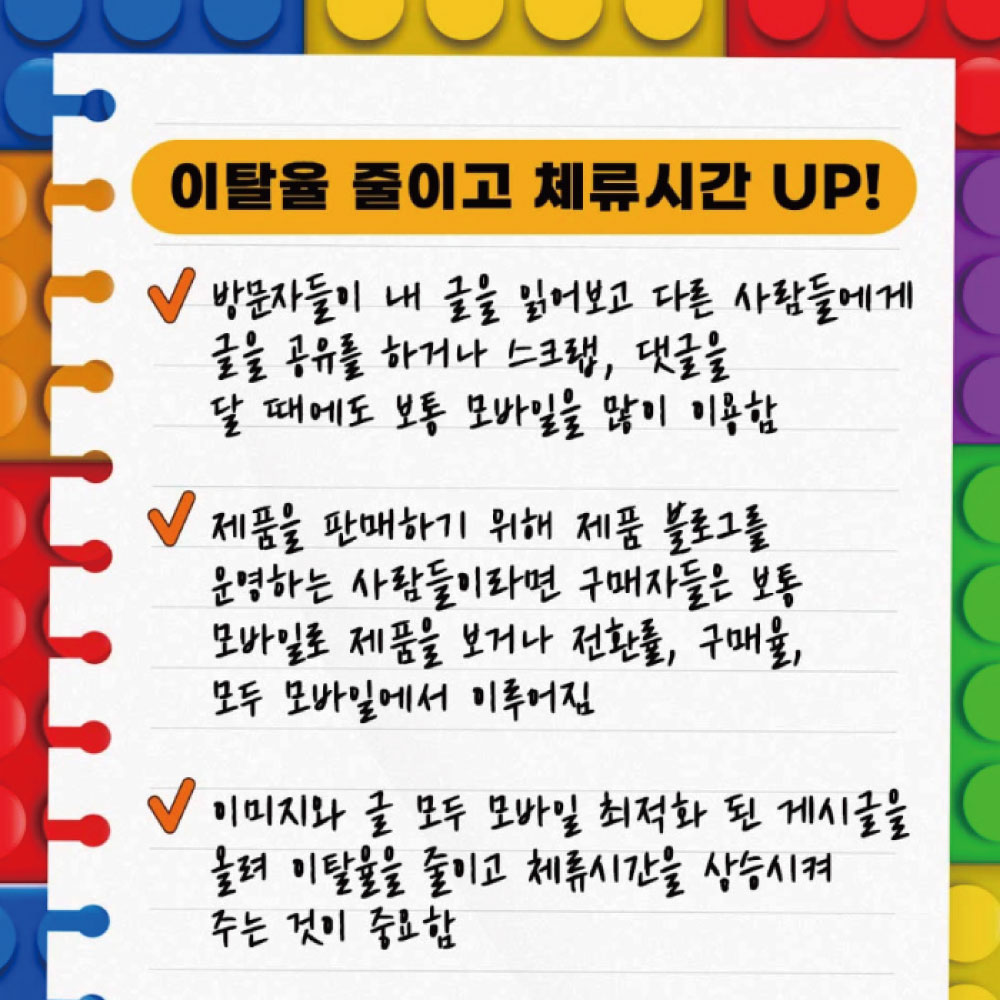 이탈율 줄이고 체류시간 UP!
방문자들이 내 글을 읽어보고 다른 사람들에게
글을 공유를 하거나 스크랩, 댓글을
달 때에도 보통 모바일을 많이 이용함
제품을 판매하기 위해 제품 블로그를
운영하는 사람들이라면 구매자들은 보통
모바일로 제품을 보거나 전환률, 구매율,
모두 모바일에서 이루어짐
이미지와 글 모두 모바일 최적화 된 게시글을
올려 이탈율을 줄이고 체류시간을 상승시켜
주는 것이 중요함